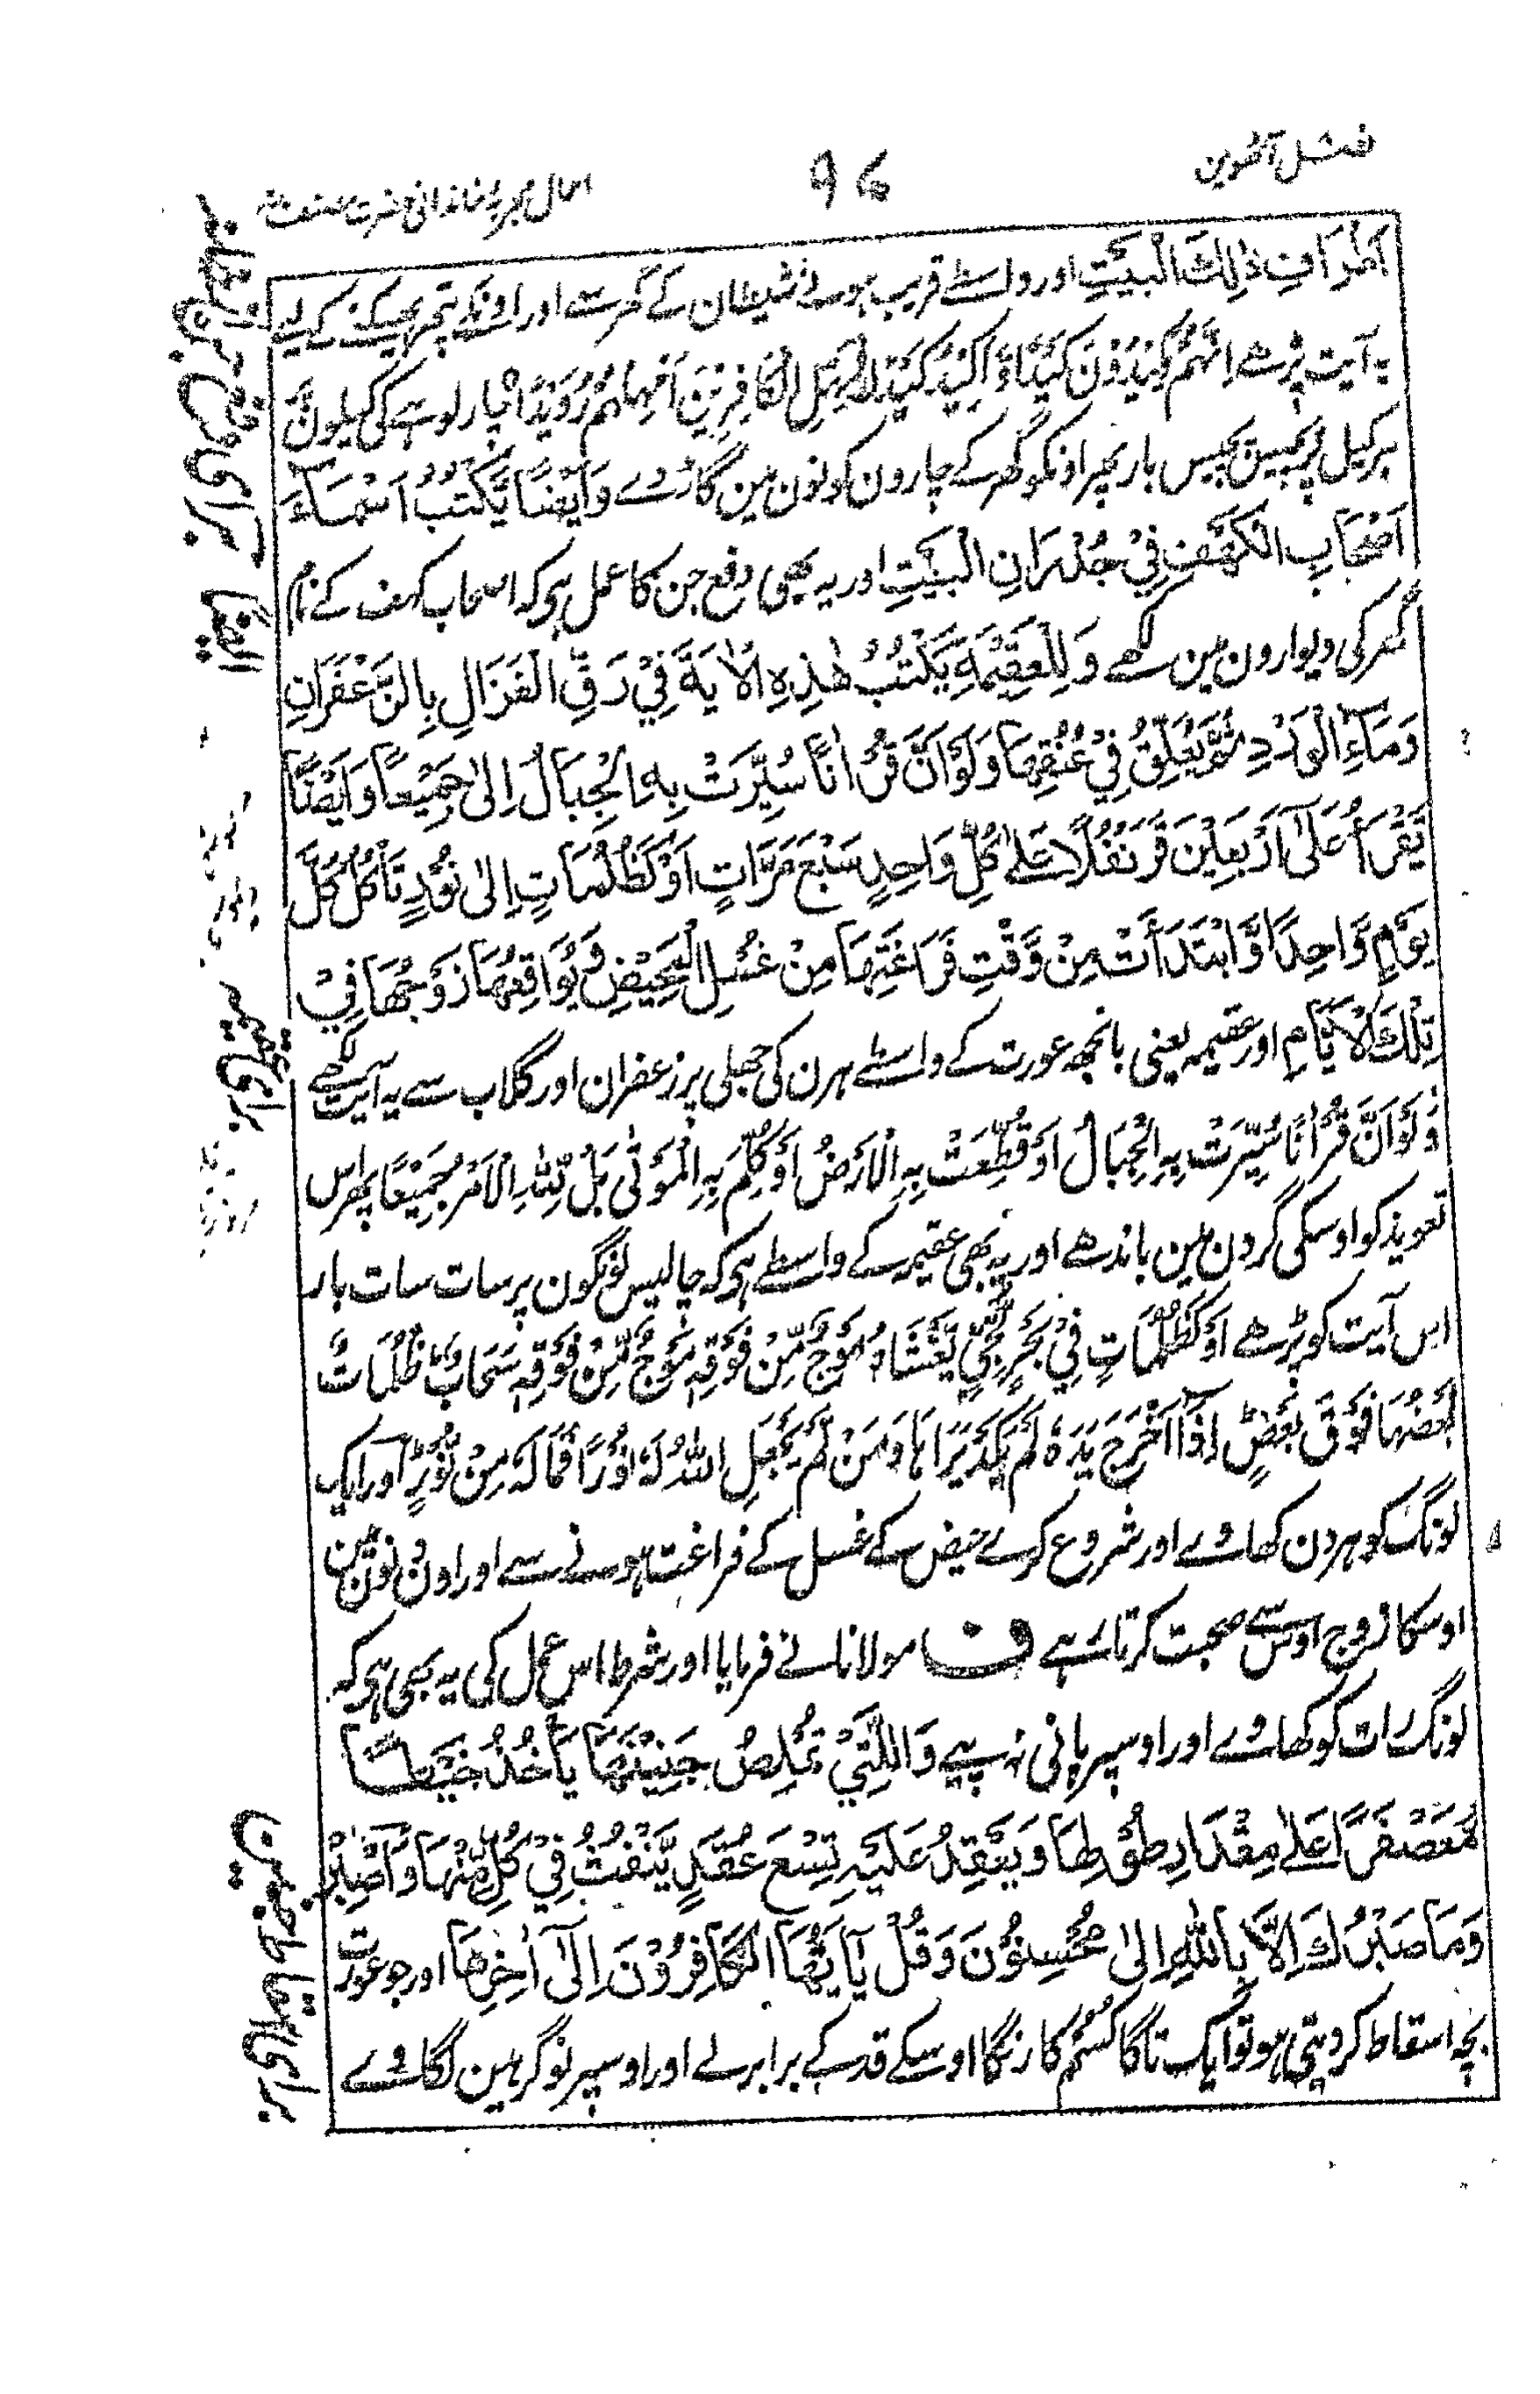 فصل آٹھوین
۹۶
اعمال مجربہ خاندانی حضرت مصنف
اَطْرَافِ ذٰلِكَ الْبَيْتِ اور واسطے قریب ہونے شیطان کے گھرسے اور اونکے پتھر پھینکنے کے لیے
یہ آیت پڑھے اِنَّهُمْ يَكِيْدُوْنَ كَيْدًا وَّاَكِيْدُ كَيْدًا فَمَهِّلِ الْكَافِرِيْنَ اَمْهِلْهُمْ رُوَيْدًا چار لوہے کی کیلون پر
ہر کیل پر پچیس پچیس بار پھر اونکو گھر کے چارون کونون مین گاڑ دے وَاَيْضًا يَّكْتُبُ اَسْمَاءَ
اَصْحَابِ الْكَهْفِ فِيْ جُدْرَانِ الْبَيْتِ اور یہ بھی دفع جن کا عمل ہی کہ اصحاب کہف کے نام
گھر کی دیوارون مین لکھے وَلِلْعَقِيْمَةِ يَكْتُبُ هٰذِهِ الْاٰيَةَ فِيْ رَقِّ الْغَزَالِ بِالزَّعْفَرَانِ
وَمَاءِ الْوَرْدِ ثُمَّ يُعَلِّقُ فِيْ عُنُقِهَا وَلَوْ اَنَّ قُرْاٰنًا سُيِّرَتْ بِهِ الْجِبَالُ اِلٰى جَمِيْعًا وَاَيْضًا
يَّقْرَأُ عَلٰى اَرْبَعِيْنَ قَرَنْفُلًا عَلٰى كُلِّ وَاحِدٍ سَبْعَ مَرَّاتٍ اَوْ كَظُلُمَاتٍ اِلٰى نُوْرٍ تَاْكُلُ كُلَّ
يَوْمٍ وَّاحِدًا وَّابْتَدَأَتْ مِنْ وَّقْتِ فَرَاغَتِهَا مِنْ غُسْلِ الْحَيْضِ وَيُوَاقِعُهَا زَوْجُهَا فِيْ
تِلْكَ الْاَيَّامِ اور عقیمہ یعنی بانجھ عورت کے واسطے ہرن کی جھلی پر زعفران اور گلاب سے یہ آیت لکھے
وَلَوْ اَنَّ قُرْاٰنًا سُيِّرَتْ بِهِ الْجِبَالُ اَوْ قُطِّعَتْ بِهِ الْاَرْضُ اَوْ كُلِّمَ بِهِ الْمَوْتٰى بَلْ لِلّٰهِ الْاَمْرُ جَمِيْعًا پھر اس
تعویذ کو اوسکی گردن مین باندھے اور یہ بھی عقیمہ کے واسطے ہی کہ چالیس لونگون پر سات سات بار
اس آیت کو پڑھے اَوْ كَظُلُمَاتٍ فِيْ بَحْرٍ لُّجِّيٍّ يَّغْشَاهُ مَوْجٌ مِّنْ فَوْقِهٖ مَوْجٌ مِّنْ فَوْقِهٖ سَحَابٌ ظُلُمَاتٌ
بَعْضُهَا فَوْقَ بَعْضٍ اِذَا اَخْرَجَ يَدَهٗ لَمْ يَكَدْ يَرَاهَا وَمَنْ لَّمْ يَجْعَلِ اللّٰهُ لَهٗ نُوْرًا فَمَا لَهٗ مِنْ نُّوْرٍ اور ایک
لونگ کو ہر دن کھاوے اور شروع کرے حیض کے غسل کے فراغت ہونے سے اور اون دنون مین
اوسکا زوج اوس سے صحبت کرتا رہے ف مولانا نے فرمایا اور شرط اس عمل کی یہ بھی ہی کہ
لونگ رات کو کھاوے اور اوسپر پانی نہ پیے وَالَّتِيْ تُمْلِصُ جَنِيْنَهَا يَاْخُذُ خَيْطًا
مُّعَصْفَرًا عَلٰى مِقْدَارِ طُوْلِهَا وَيَعْقِدُ عَلَيْهِ تِسْعَ عُقَدٍ يَّنْفُثُ فِيْ كُلٍّ مِّنْهَا وَاصْبِرْ
وَمَا صَبْرُكَ اِلَّا بِاللّٰهِ اِلٰى مُحْسِنُوْنَ وَقُلْ يٰاَيُّهَا الْكَافِرُوْنَ اِلٰى اٰخِرِهَا اور جو عورت
بچہ اسقاط کر دیتی ہو تو ایک تاگا کسم کا رنگا اوسکے قد کے برابر لے اور اوسپر نو گرہین لگاوے
برای دفع جن از خانہ
ایضا
برای عقیمہ
برای اسقاط جنین